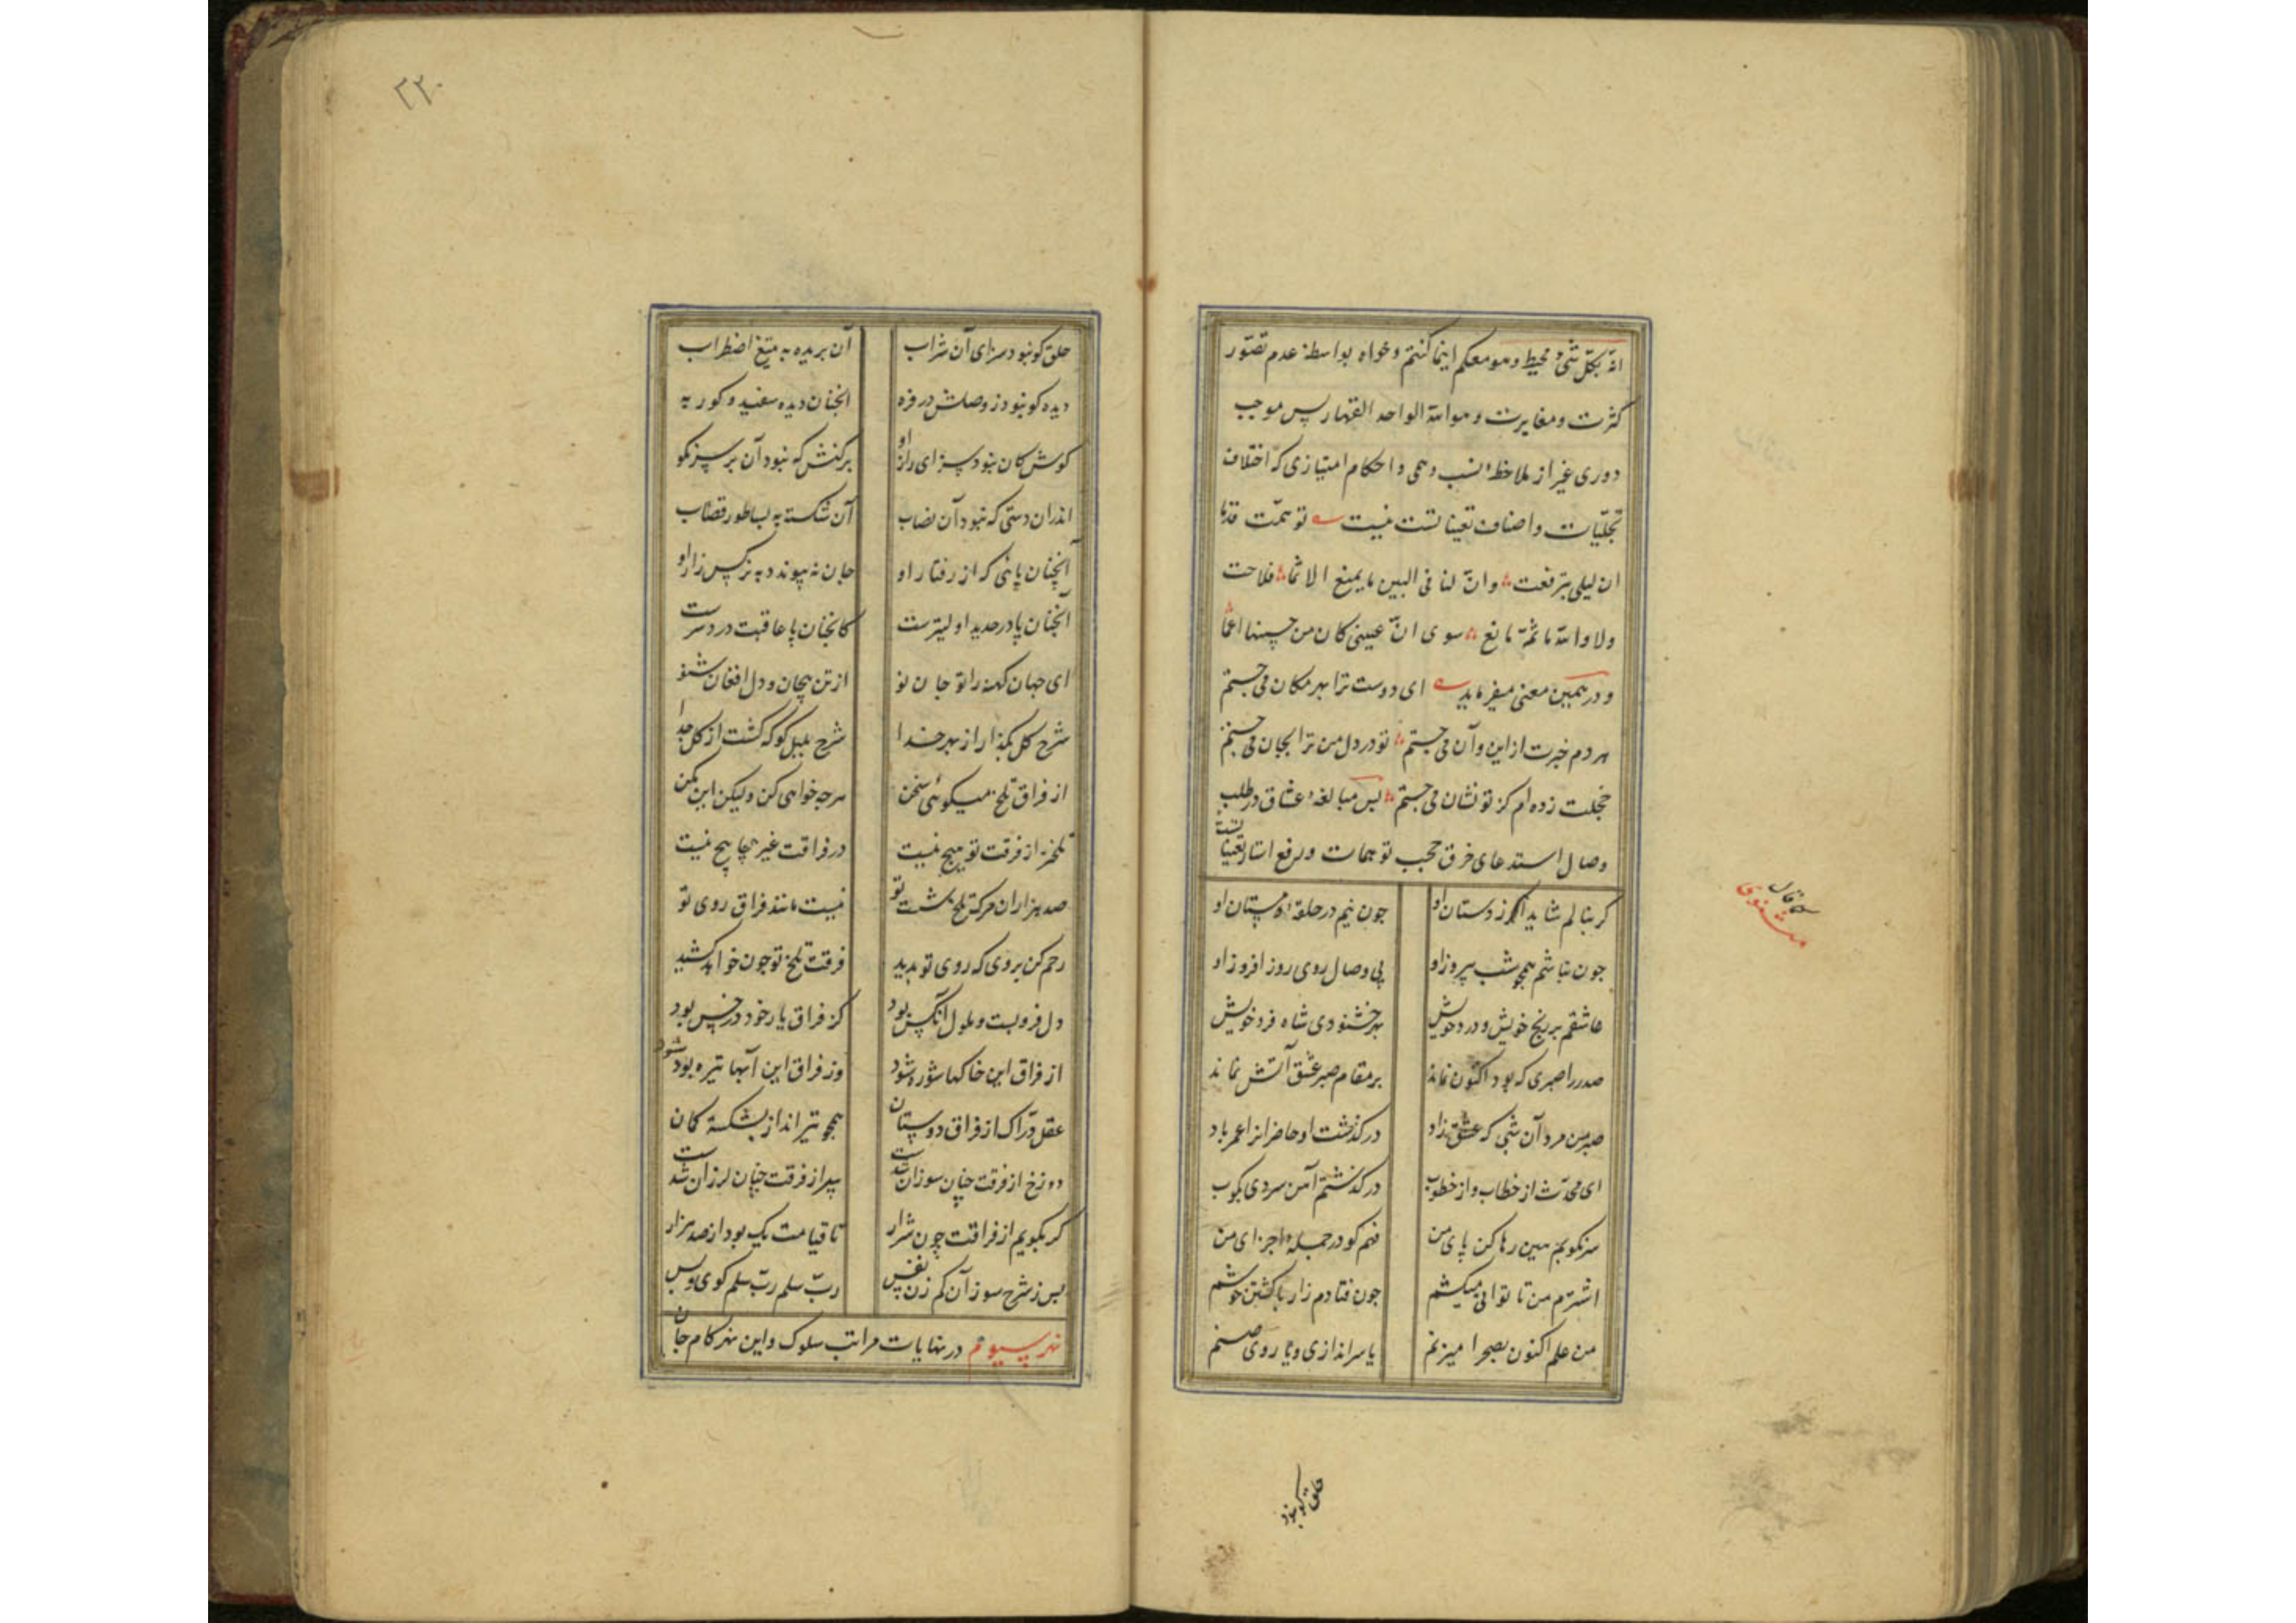 انّه بکلّ شیٔ محیط و هو معکم اینما کنتم و خواه بواسطهٔ عدم تصوّر
کثرت و مغایرت و هو اللّه الواحد القهار پس موجب
دوری غیر از ملاحظهٔ نسب وهمی و احکام امتیازی که اختلاف
تجلّیات و اصناف تعیناتست نیست توهمّت قدما
ان لیلی تبرقعت وانّ لنا فی البین ما یمنع الا ثما فلاحت
ولا واللّه ما ثمّه مانع سوی انّ عینی کان من حسنها اعما
و در همین معنی میفرماید ای دوست ترا بهر مکان می جستم
هر دم خبرت از این و آن می جستم تو در دل من ترا بجان می جستم
خجلت زده ام کز تو نشان می جستم پس مبالغهٔ عشاق در طلب
وصال استدعای خرق حجب توهمات و رفع استار تعیناتست
کما قال
مثنوی
کر بنالم شاید اکر ز دستان او
چون نیم در حلقهٔ مستان او
چون نباشم همچو شب بی روز او
بی وصال روی روز افروز او
عاشقم بر رنج خویش و درد خویش
بهر خشنودی شاه فرد خویش
صدر را صبری که بود اکنون نماند
بر مقام صبر عشق آتش نماند
صبر من مرد آن شبی که عشق زاد
درکذشت او حاضرانرا عمر باد
ای محدّث از خطاب و از خطوب
درکذشتم آهن سردی بکوب
سرنکونم هین رها کن پای من
فهم کو در جملهٔ اجزای من
اشترم من تا توانی میکشم
چون فتادم زار با کشتن خوشم
من علم اکنون بصحرا میزنم
یا سراندازی و یا روی صنم
حلق کو نبود
۲۲۰
حلق کو نبود سزای آن شراب
آن بریده به بتیغ اضطراب
دیده کو نبود ز وصلش در فره
انچنان دیده سفید و کور به
کوش کان نبود سزای راز او
برکنش که نبود آن بر سر نکو
اندران دستی که نبود آن نصاب
آن شکسته به بساطور قصاب
آنچنان پائی که از رفتار او
جان نه پیوندد به نرکس زار او
آنچنان پا در حدید اولیترست
کانچنان پا عاقبت درد سرست
ای جهان کهنه را تو جان نو
از تن بیجان و دل افغان شنو
شرح کل بکذار از بهر خدا
شرح بلبل کو که کشت از کل جدا
از فراق تلخ میکوئی سخن
هرچه خواهی کن ولیکن این مکن
تلختر از فرقت تو هیچ نیست
در فراقت غیر پیچاپیچ نیست
صد هزاران مرک تلخ شصت تو
نیست مانند فراق روی تو
رحم کن بر وی که روی تو بدید
فرقت تلخ تو چون خواهد کشید
دل فرو بست و ملول آنکس بود
کز فراق یار خود در حبس بود
از فراق این خاکها شوره شود
وز فراق این آبها تیره بود شود
عقل درّاک از فراق دوستان
همچو تیرانداز بشکسته کمان
دوزخ از فرقت چنان سوزان شدست
پیر از فرقت چنان لرزان شدست
کر بکویم از فراقت چون شرار
تا قیامت یک بود از صد هزار
پس ز شرح سوز آن کم زن نفس
ربّ سلم ربّ سلم کوی و بس
نهر سیوم در نهایات مراتب سلوک و این نهر کام جان